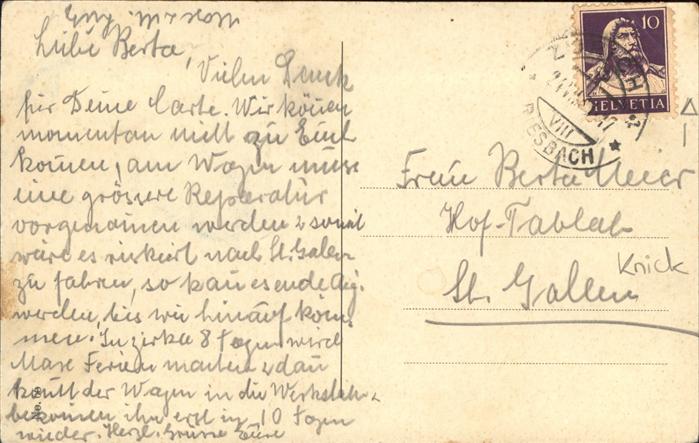 Liebe Berta,
Vielen Dank
für Deine Carte. Wir können
momentan nicht zu Euch
kommen, am Wagen muss
eine grössere Reperatur
vorgenommen werden & somit
wäre es riskiert nach St. Gallen
zu fahren, so kann es ende Aug.
werden, bis wir hinauf kom-
men. In zirka 8 Tagen wird
Max Ferien machen & dan
komt der Wagen in die Werkstatt &
bekommen ihn erst in 10 Tagen
wieder. Herzl. Grüsse Eure
No. 79
10
HELVETIA
VIII
RIESBACH
Frau Berta Meier
Hof-Tablat
St. Gallen
Knick